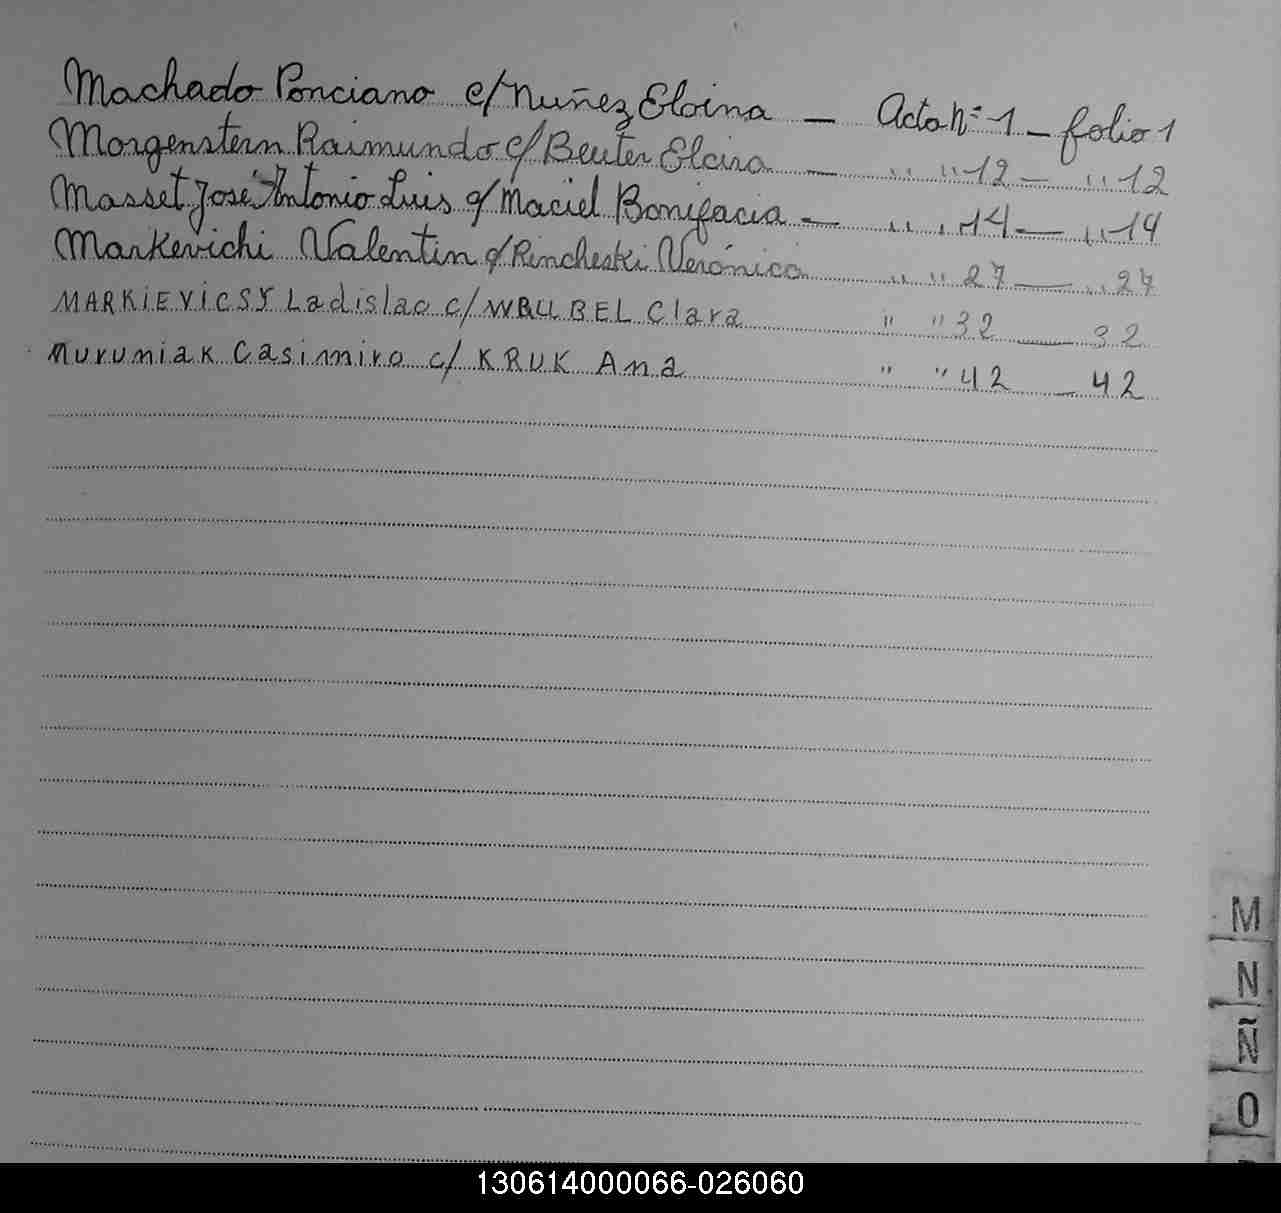 Machado Ponciano c/ Nuñez Eloina — Acta Nº 1 — folio 1
Morgenstern Raimundo c/ Beuter Elcira — " " 12 — " 12
Masset José Antonio Luis c/ Maciel Bonifacia — " " 14 — " 14
Markevichi Valentin c/ Rincheski Verónica " " 27 — " 27
MARKIEVICSY Ladislao c/ Clara " " 32 — 32
Muruniak Casimiro c/ KRUK Ana " " 42 — 42
M
N
Ñ
O
130614000066-026060